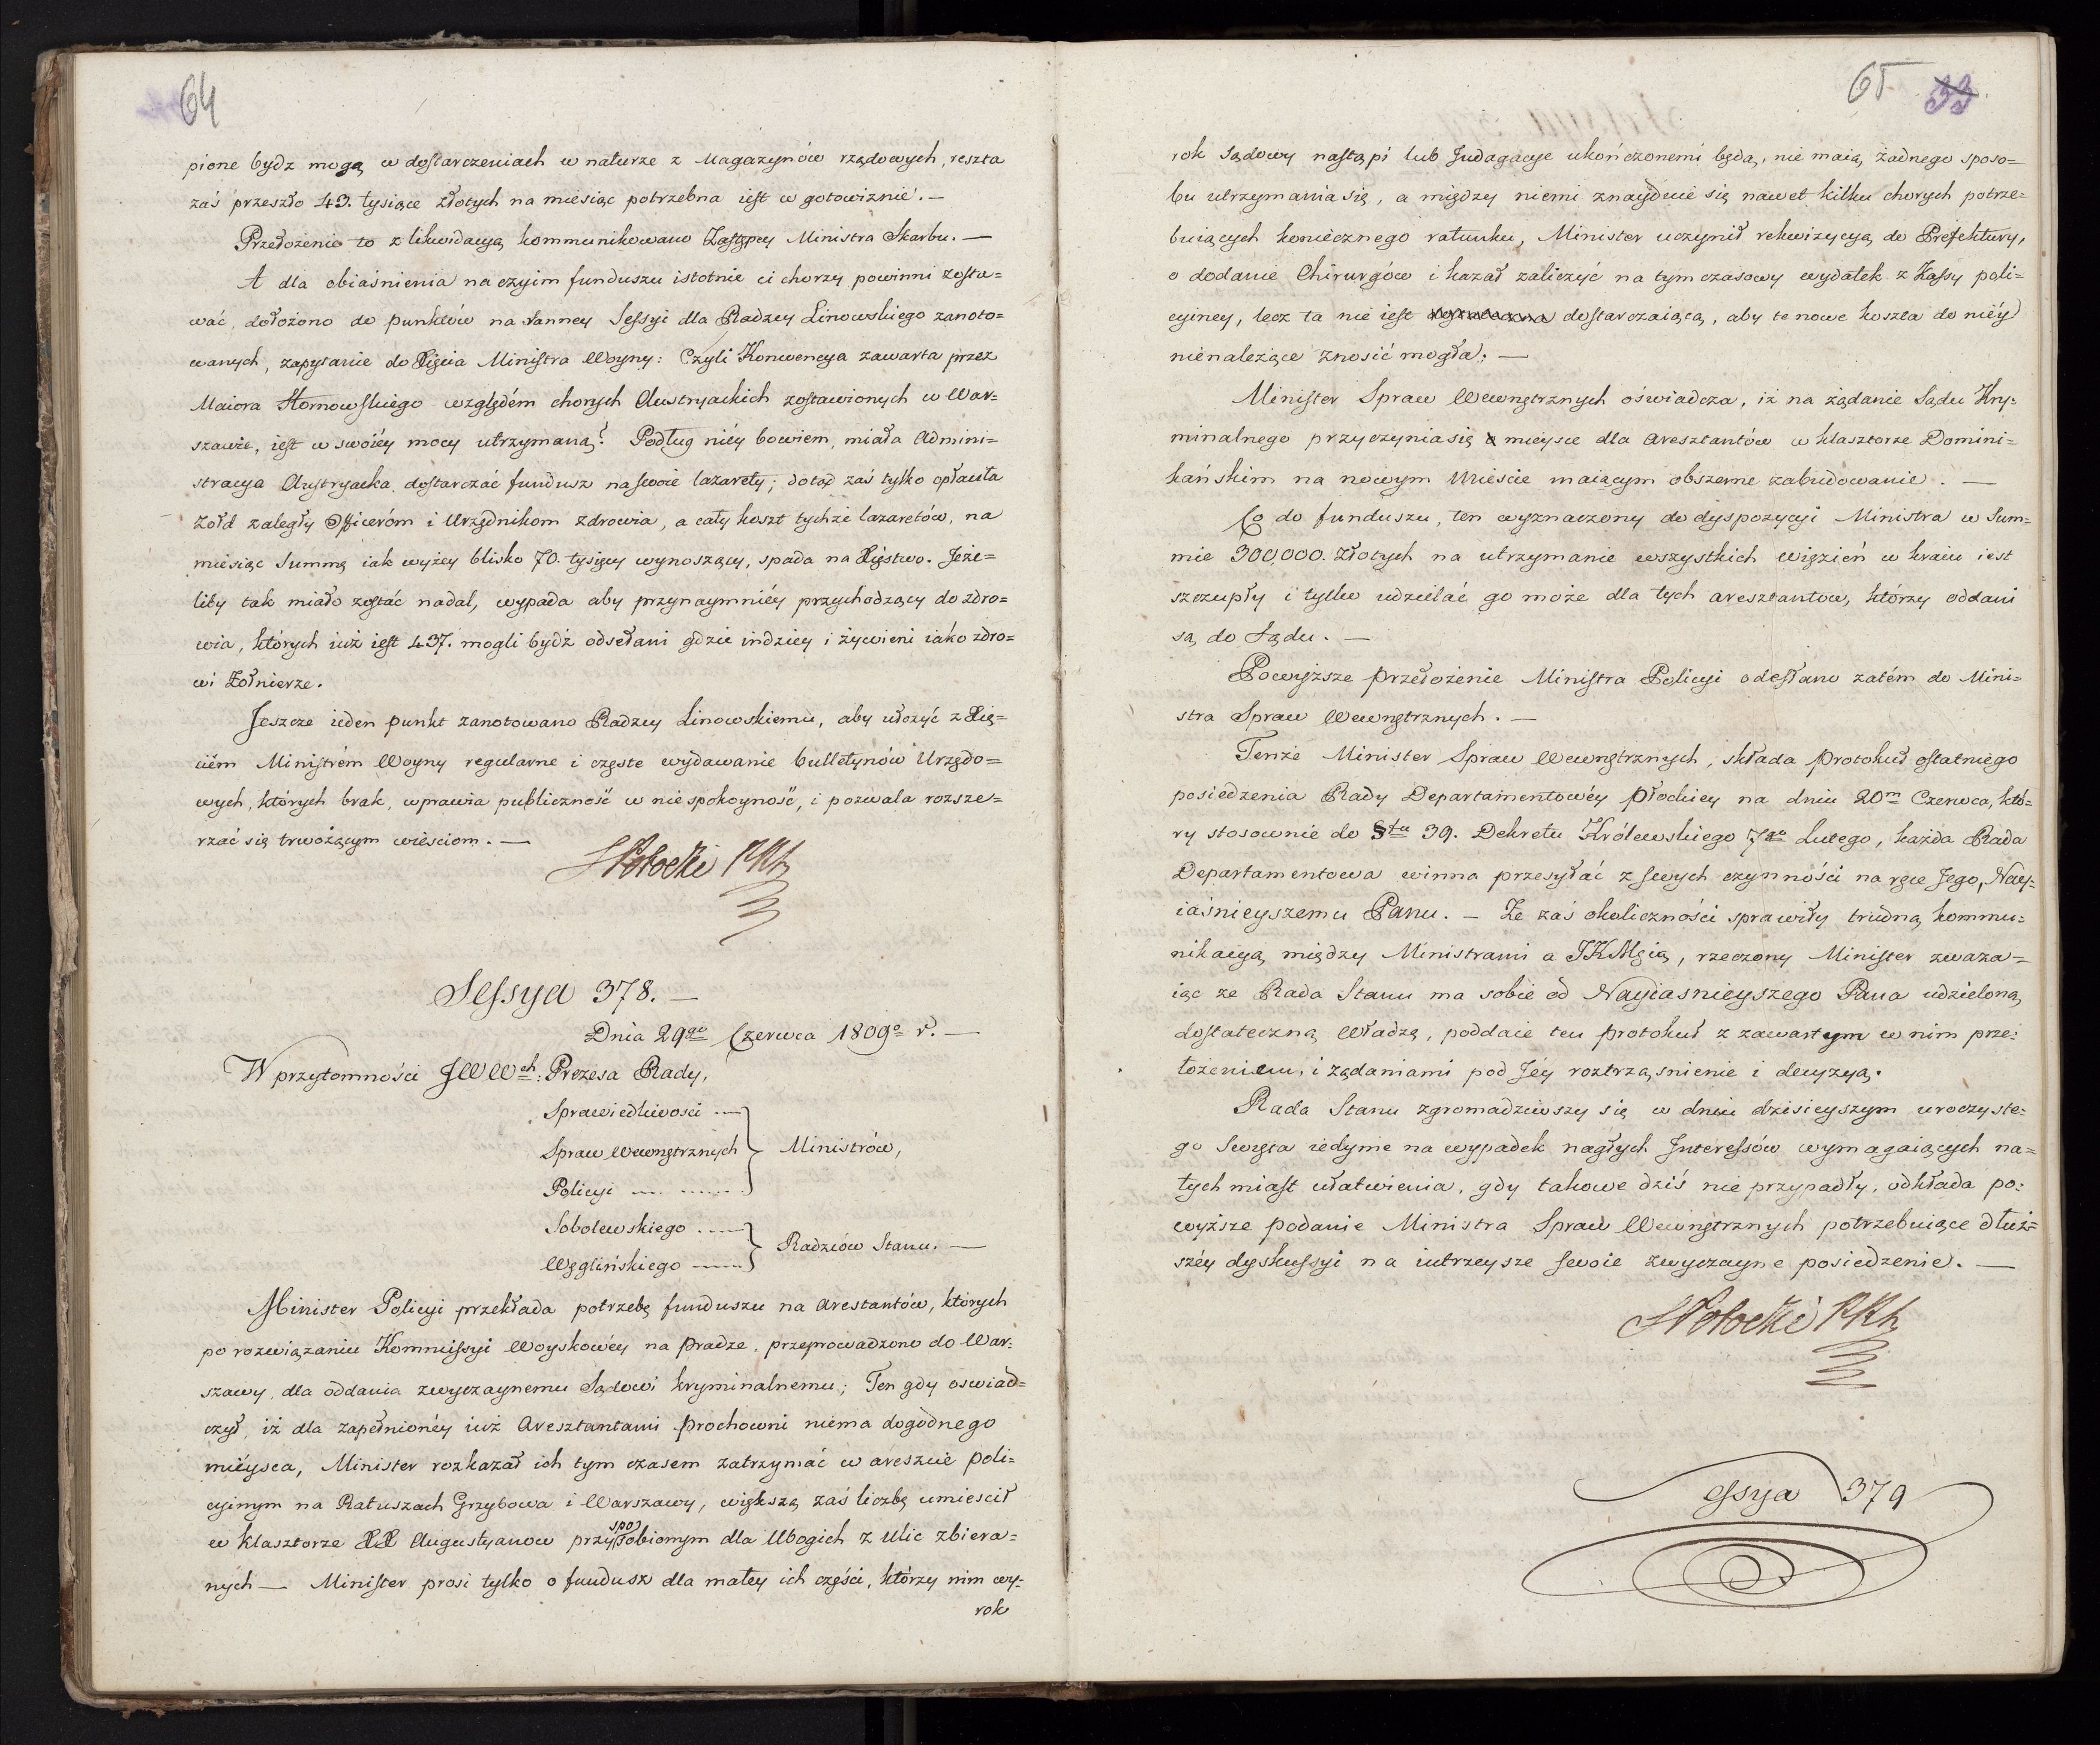 64
pione bydz mogą w dostarczeniach w naturze z Magazynów rządowych, reszta
zaś przeszło 43. tysiące złotych na miesiąc potrzebna iest w gotowiznie. —
Przełożenie to z likwidacyą kommunikowano Zastępcy Ministra Skarbu. —
A dla obiaśnienia na czyim funduszu istotnie ci chorzy powinni zosta=
wać, dołożono do punktów na ranney Sessyi dla Radzcy Linowskiego zanoto=
wanych, zapytanie do Xięcia Ministra Woyny: Czyli Konwencya zawarta przez
Maiora Hornowskiego względem chorych Austryackich zostawionych w War=
szawie, iest w swoiéy mocy utrzymaną? Podług niéy bowiem, miała Admini=
stracya Austryacka dostarczać fundusz na swoie lazarety; dotąd zaś tylko opłaciła
żołd zaległy Officeróm i Urzędnikom zdrowia, a cały koszt tychże lazaretów, na
miesiąc Summę iak wyżey blisko 70. tysięcy wynoszący, spada na Xięstwo. Jeże=
liby tak miało zostać nadal, wypada aby przynaymniéy przychodzący do zdro=
wia, których iuż iest 437. mogli bydź odsełani gdzie indziey i żywieni iako zdro=
wi Żołnierze.
Jeszcze ieden punkt zanotowano Radzcy Linowskiemu, aby ułożyć z Xię=
ciém Ministrém Woyny regularne i częste wydawanie bulletynów Urzędo=
wych, których brak, wprawia publiczność w niespokoyność, i pozwala rozsze=
rzać się trwożącym wieściom. —
SPotocki PRM
Sessya 378. —
Dnia 29go Czerwca 1809o r. —
W przytomności JWWch: Prezesa Rady,
Sprawiedliwości —
Spraw Wewnętrznych } Ministrów,
Policyi ... ......
Sobolewskiego ....
} Radzców Stanu. —
Węglińskiego ——
Minister Policyi przekłada potrzebę funduszu na Arestantów, których
po rozwiązaniu Kommissyi Woyskowéy na Pradze, przeprowadzono do War=
szawy, dla oddania zwyczaynemu Sądowi kryminalnemu; Ten gdy oswiad=
czył, iż dla zapełnionéy iuż Aresztantami Prochowni niema dogodnego
miéysca, Minister rozkazał ich tym czasem zatrzymać w areszcie poli=
cyinym na Ratuszach Grzybowa i Warszawy, większą zaś liczbę umieścił
w klasztorze XX Augustyanow przysposobionym dla Ubogich z Ulic zbiera=
nych — Minister prosi tylko o fundusz dla małey ich części, którzy nim wy=
rok
65 33
rok sądowy nastąpi lub Indagacye ukończonemi będą, nie maią żadnego sposo=
bu utrzymania się, a między niemi znayduie się nawet kilku chorych potrze=
buiących koniecznego ratunku, Minister uczynił rekwizycyą do Prefektury,
o dodanie Chirurgów i kazał zaliczyć na tymczasowy wydatek z Kassy poli=
cyiney, lecz ta nie iest dostarczaiącą, aby te nowe koszta do niéy
nienależące znosić mogła. —
Minister Spraw Wewnętrznych oświadcza, iż na żądanie Sądu Kry=
minalnego przyczynia się mieysce dla aresztantów w klasztorze Domini=
kańskim na nowym Mieście maiącym obszerne zabudowanie. —
Co do funduszu, ten wyznaczony do dyspozycyi Ministra w Sum=
mie 300,000. złotych na utrzymanie wszystkich więzień w kraiu iest
szczupły i tylko udzielać go może dla tych aresztantow, którzy oddani
są do Sądu. —
Powyższe przełożenie Ministra Policyi odesłano zatém do Mini=
stra Spraw Wewnętrznych. —
Tenże Minister Spraw Wewnętrznych, składa Protokuł ostatniego
posiedzenia Rady Departamentowéy Płockiey na dniu 20m Czerwca, któ=
ry stosownie do §tu 39. Dekretu Królewskiego 7go Lutego, każda Rada
Departamentowa winna przesyłać z swych czynności na ręce Jego, Nay=
iaśnieyszemu Panu. — Że zaś okoliczności sprawiły trudną kommu=
nikacyą między Ministrami a JKMcią, rzeczony Minister zważa=
iąc że Rada Stanu ma sobie od Nayiasnieyszego Pana udzieloną,
dostateczną władzę, poddaie ten protokuł z zawartym w nim prze=
łożeniem, i żądaniami pod Jéy roztrząśnienie i decyzyą.
Rada Stanu zgromadziwszy się w dniu dzisieyszym uroczyste=
go Święta iedynie na wypadek nagłych Interessów wymagaiących na=
tychmiast ułatwienia, gdy takowe dziś nie przypadły, odkłada po=
wyższe podanie Ministra Spraw Wewnętrznych potrzebuiące dłuż=
széy dyskussyi na iutrzeysze swoie zwyczayne posiedzenie. —
SPotocki PRM
Sessya 379